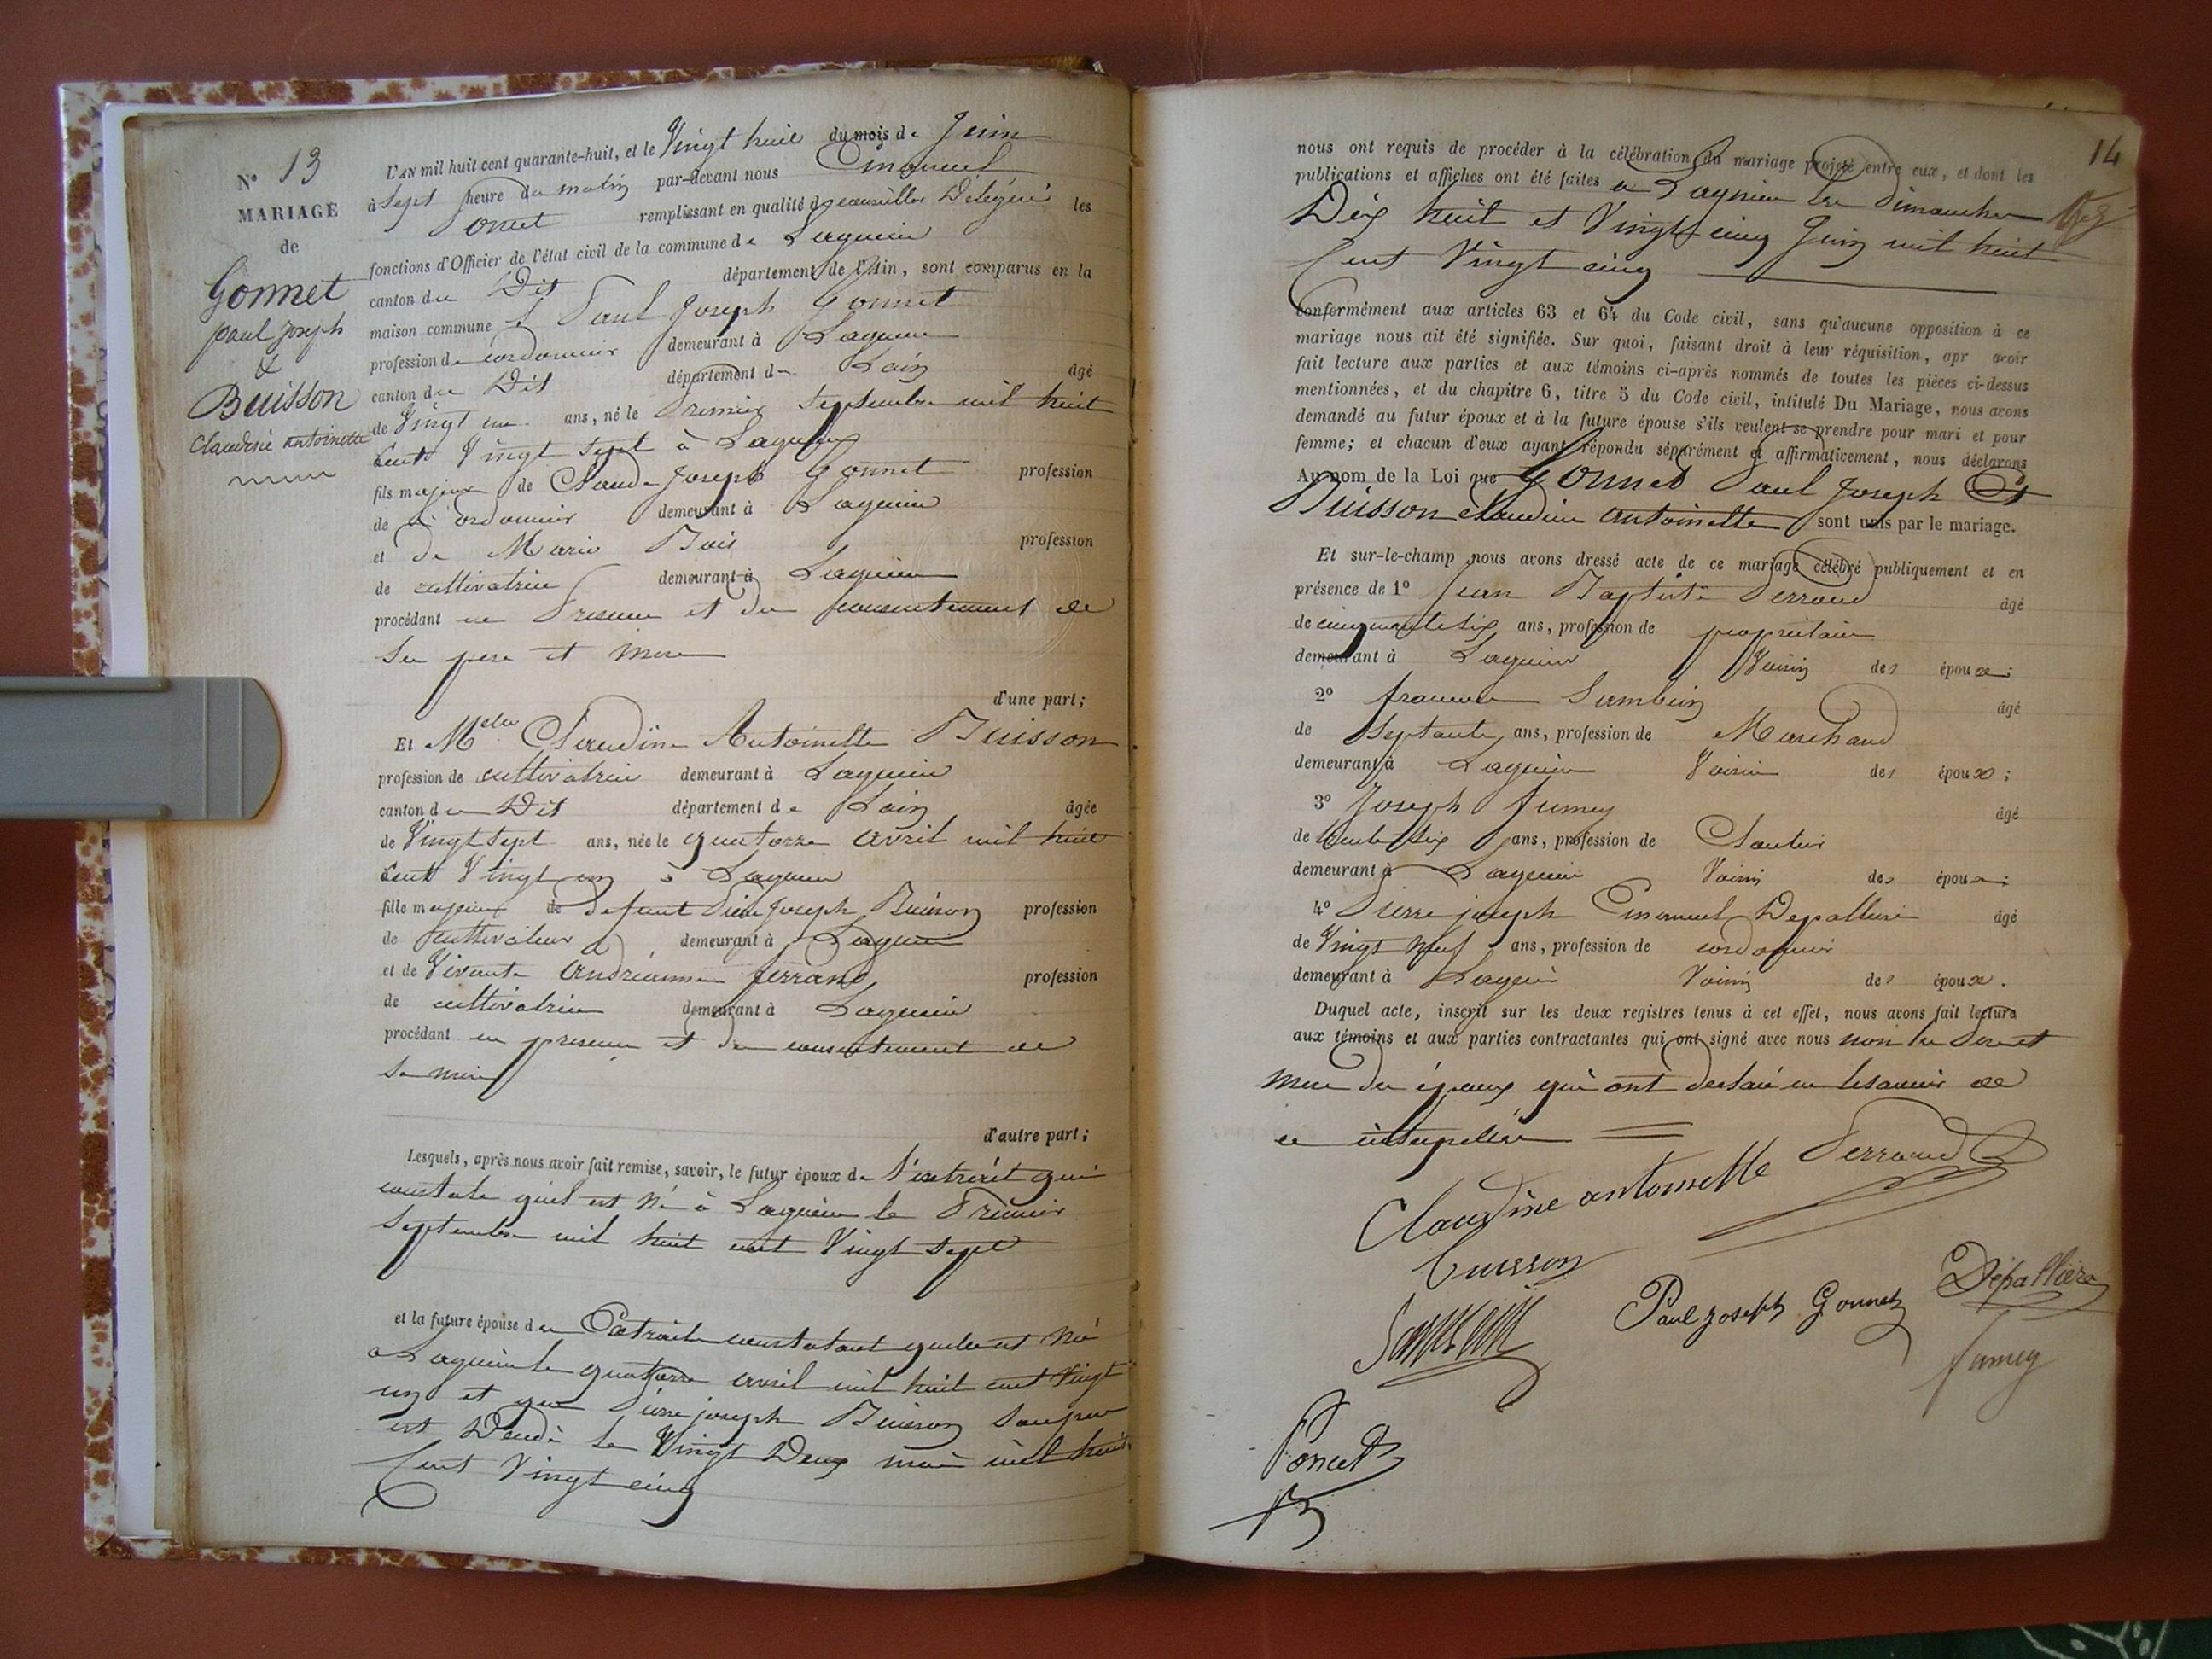 N° 13
MARIAGE
de
Gonnet
paul Joseph
&
Buisson
Claudine antoinette
L'AN mil huit cent quarante-huit, et le Vingt huit du mois de Juin
à Sept heure du matin par-devant nous Emanuel
Poncet remplissant en qualité de conseiller Délégué les
fonctions d'Officier de l'état civil de la commune de Lagnieu
canton du Dit département de l'Ain, sont comparus en la
maison commune S Paul Joseph Gonnet
profession de cordonnier demeurant à Lagnieu
canton du Dit département de Lain âgé
de Vingt un ans, né le Premier Septembre mil huit
Cent Vingt Sept à Lagnieu
fils majeur de Claude Joseph Gonnet profession
de Cordonnier demeurant à Lagnieu
et de Marie Bois profession
de cultivatrice demeurant à Lagnieu
procédant en Presence et du consentement de
Se pere et Mere
d'une part;
Et Melle Claudine Antoinette Buisson
profession de cultivatrice demeurant à Lagnieu
canton du Dit département de Lain âgée
de Vingt Sept ans, née le quatorze avril mil huit
Cent Vingt un à Lagnieu
fille majeure de defunt Pierre Joseph Buisson profession
de Cultivateur demeurant à Lagnieu
et de Vivante Andrianne ferrand profession
de cultivatrice demeurant à Lagnieu
procédant en presence et du consentement de
Sa mere
d'autre part;
Lesquels, après nous avoir fait remise, savoir, le futur époux de l'extrait qui
constate quil est Né à Lagnieu le Premier
Septembre mil huit cent Vingt Sept
et la future épouse de Extrait constatant quelle est Né
a Lagnieu le quatorze avril mil huit cent Vingt
un et que Pierre joseph Buisson Son pere
est Décédé le Vingt Deux mai mil huit
Cent Vingt cinq
14
nous ont requis de procéder à la célébration du mariage projeté entre eux, et dont les
publications et affiches ont été faites a Lagnieu les Dimanches
Dix huit et Vingt cinq Juin mil huit
Cent Vingt cinq
Conformément aux articles 63 et 64 du Code civil, sans qu'aucune opposition à ce
mariage nous ait été signifiée. Sur quoi, faisant droit à leur réquisition, apr avoir
fait lecture aux parties et aux témoins ci-après nommés de toutes les pièces ci-dessus
mentionnées, et du chapitre 6, titre 5 du Code civil, intitulé Du Mariage, nous avons
demandé au futur époux et à la future épouse s'ils veulent se prendre pour mari et pour
femme; et chacun d'eux ayant répondu séparément et affirmativement, nous déclarons
Au nom de la Loi que Gonnet Paul Joseph Et
Buisson Claudine antoinette sont unis par le mariage.
Et sur-le-champ nous avons dressé acte de ce mariage célébré publiquement et en
présence de 1° Jean Baptiste Perraud âgé
de cinquante six ans, profession de propriétaire
demeurant à Lagnieu Voisin des époux;
2° francois Sambuin âgé
de Septante ans, profession de Marchand
demeurant à Lagnieu Voisin des époux;
3° Joseph fumey âgé
de trente Six ans, profession de
demeurant à Lagnieu Voisin des époux;
4° Pierre joseph Emanuel Depalliere âgé
de Vingt Neuf ans, profession de cordonnier
demeurant à Lagnieu Voisin des époux.
Duquel acte, inscrit sur les deux registres tenus à cet effet, nous avons fait lecture
aux témoins et aux parties contractantes qui ont signé avec nous non les Pere et
Mere des époux qui ont declaré ne le savoir de
ce interpellés
Claudine antoinette
buisson
Perraud
Depalliere
Paul Joseph Gonnet
fumey
Poncet